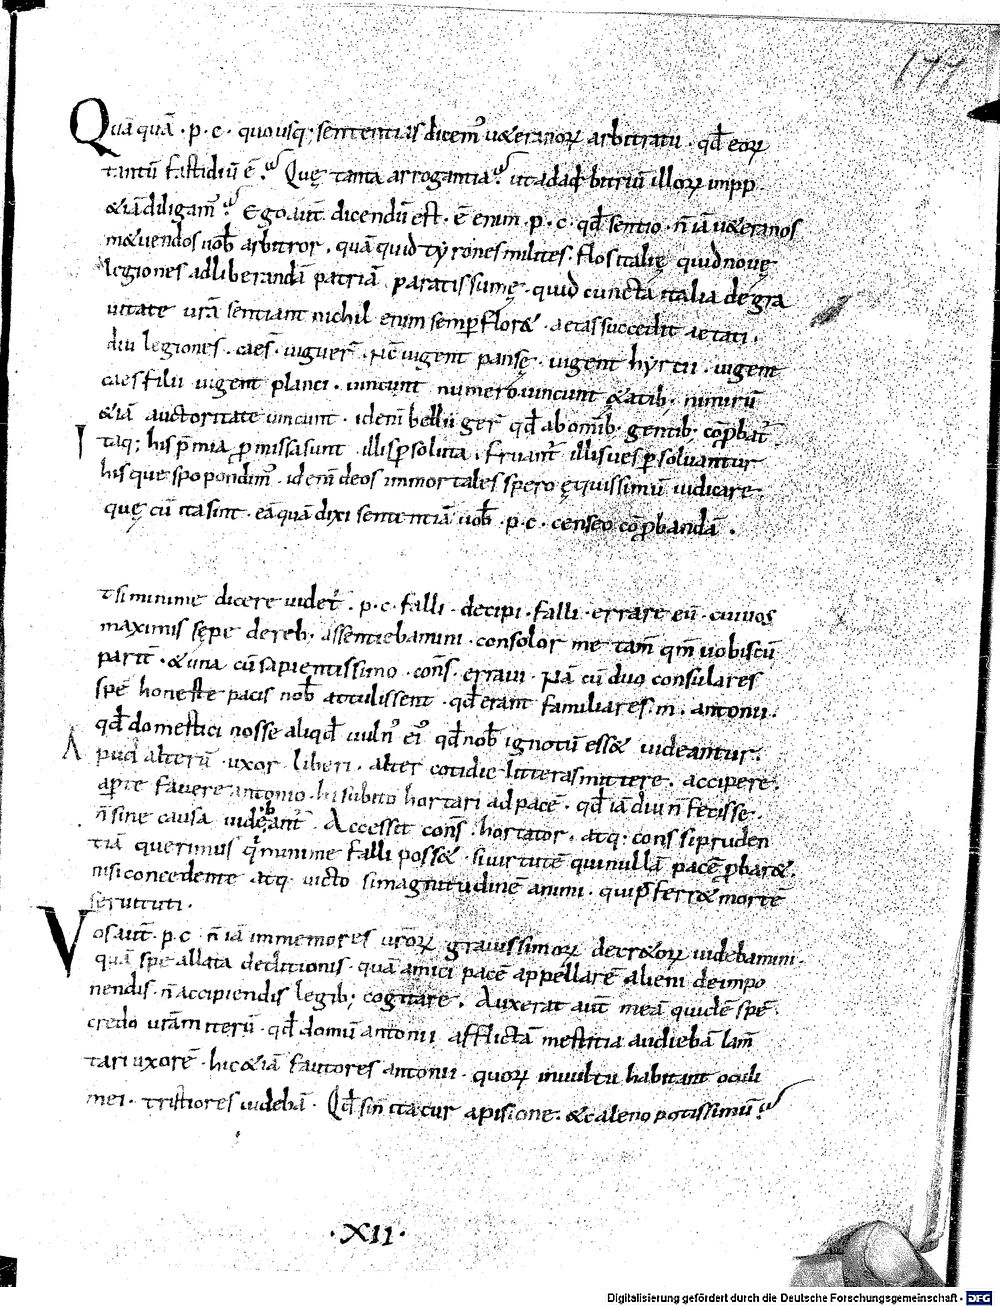 177
Quā quā · p · c · quousq; sententias dicem᷒ u&eranoꝝ arbitratu · qd̄ eoꝝ
tantū fastidiū ē · Quę tanta arrogantia · ut ad arbitriū illoꝝ impp
&iā diligam᷒ · Ego aut̄ dicendū est · ē enim · p · c · qd̄ sentio · n̄ iā u&eranos
intuendos nob̄ arbitror · quā quid tyrones milites · flos italię quid nouę
legiones ad liberandā patriā paratissimę · quid cuncta italia de gra
uitate urā sentiant nichil enim semp flor& · aetas succedit aetati ·
diu legiones · caes̄ · uiguer̄ · nc̄ uigent pansę · uigent hyrtii · uigent
caes filii uigent planci · uincunt numero uincunt &atib; nimirū
&iā auctoritate uincunt · idem bellū ger̄ qd̄ ab omib; gentib; cōprobat̄
Itaq; his p̄mia p̄missa sunt illis psoluta · Fruant̄ illis ues psoluantur
his que spopondim᷒ · idem deos immortales spero ęquissimū iudicare ·
quę cū ita sint · eā quā dixi sententiā uob̄ · p · c · censeo cōprobandā ·
tsi minime dicere uidet̄ · p · c · falli · decipi · falli · errare eū · cui uos
maximis sępe de reb; assentiebamini · consolor me tam̄ qm̄ uobiscū
parit̄ · & una cū sapientissimo · cons̄ · erraui · Nā cū duo consulares
spē honeste pacis nob̄ attulissent · qd̄ erant familiares · m · antonii ·
qd̄ domestici nosse aliqd̄ uuln᷒ ei᷒ qd̄ nob̄ ignotū ess& uideantur ·
Apud alterū · uxor · liberi · alter cotidie litteras mittere · accipere
apte fauere antonio · hi subito hortari ad pacē · qd̄ iā diu n̄ fecisse ·
n̄ sine causa uidebant̄ · Accessit cons̄ · hortator · atq; cons si pruden
tiā querimus q̄ minime falli poss& · si uirtutē qui nullā pacē pbar&
nisi concedente atq; uicto si magnitudinē animi · qui p̄ferr& mortē
seruituti ·
Vos aut̄ · p · c · n̄ iā immemores uroꝝ grauissimoꝝ decr&oꝝ uidebamini ·
quā spe allata deditionis · quā amici pacē appellarē alieni de impo
nendis · n̄ accipiendis legib; cogitare · Auxerat aut̄ meā quidē spē
credo urām iterū · qd̄ domū antonii afflictā mestitia audiebā lam̄
tari uxorē · hic &iā fautores antonii · quoꝝ in uultu habitant oculi
mei · tristiores uidebā · Qd̄ si n̄ ita cur a pisione · & caleno potissimū
· XII ·
Digitalisierung gefördert durch die Deutsche Forschungsgemeinschaft - DFG